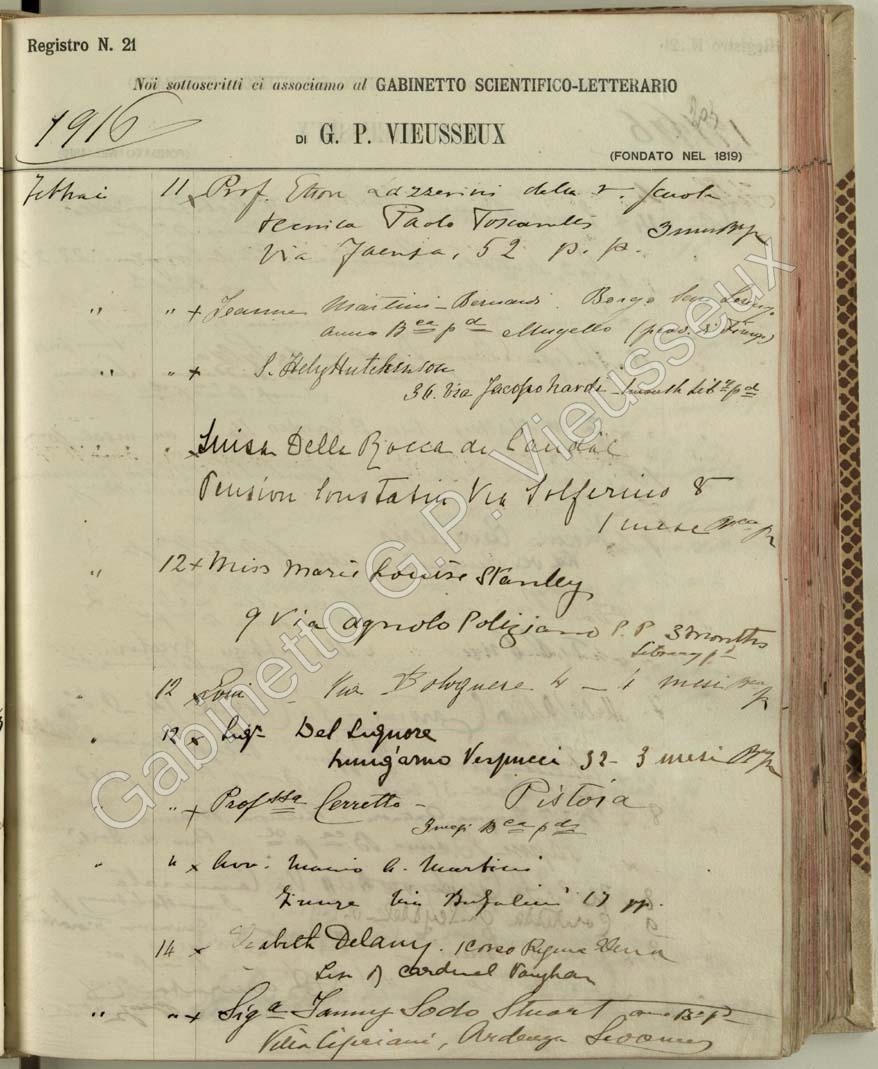 Registro N. 21
Noi sottoscritti ci associamo al GABINETTO SCIENTIFICO-LETTERARIO
1916
DI G. P. VIEUSSEUX
(FONDATO NEL 1819)
Febbraio 11 x Prof. Ettore Lazzerini della r. scuola
tecnica Paolo Toscanelli 3 mesi
Via Faenza, 52 p. p.
" " x Jeanne Martini-Bernardi. Borgo San Lorenzo
anno Bca pd Mugello (prov. di Firenze)
" " x S. Hely Hutchinson
36. Via Jacopo Nardi
" x Luisa Della Rocca de Candal
Pension Via Solferino 8
1 mese Bca p
" 12 x Miss Marie Louise Stanley
9 Via Agnolo Poliziano P. P. 3 months
Library pd
" 12 x Via Bolognese 4 - 1 mesi
" 12 x Sigr Del Signore
Lungarno Vespucci 32 - 3 mesi
" " x Profssa Cerretto - Pistoia
3 mesi Bca pd
" " x Avv. Mario A. Martini
Firenze Via Bufalini 17 pp.
14 x Delany. 1 Corso Regina Elena
Life of Cardinal Vaughan
" " x Siga Fanny Sodo Stuart anno
Villa Cipriani, Ardenza Livorno
Gabinetto G.P. Vieusseux